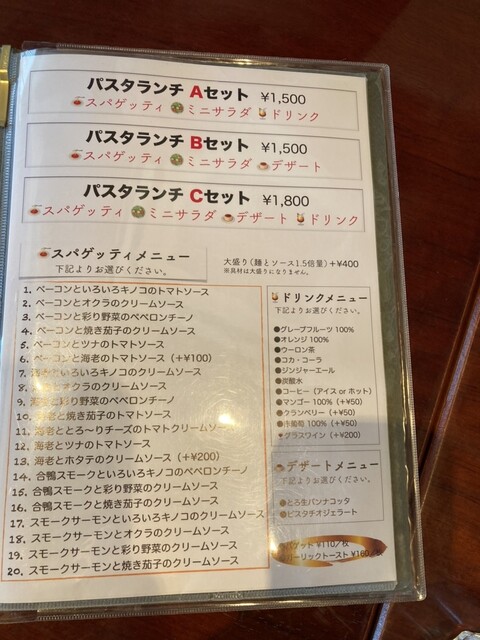 パスタランチ Aセット ¥1,500
スパゲッティ ミニサラダ ドリンク
パスタランチ Bセット ¥1,500
スパゲッティ ミニサラダ デザート
パスタランチ Cセット ¥1,800
スパゲッティ ミニサラダ デザート ドリンク
スパゲッティメニュー
下記よりお選びください。
大盛り(麺とソース1.5倍量)+¥400
※具材は大盛りになりません。
1. ベーコンといろいろキノコのトマトソース
2. ベーコンとオクラのクリームソース
3. ベーコンと彩り野菜のペペロンチーノ
4. ベーコンと焼き茄子のクリームソース
5. ベーコンとツナのトマトソース
6. ベーコンと海老のトマトソース(+¥100)
7. 海老といろいろキノコのクリームソース
8. 海老とオクラのクリームソース
9. 海老と彩り野菜のペペロンチーノ
10. 海老と焼き茄子のトマトソース
11. 海老ととろ〜りチーズのトマトクリームソース
12. 海老とツナのトマトソース
13. 海老とホタテのクリームソース(+¥200)
14. 合鴨スモークといろいろキノコのペペロンチーノ
15. 合鴨スモークと彩り野菜のクリームソース
16. 合鴨スモークと焼き茄子のクリームソース
17. スモークサーモンといろいろキノコのクリームソース
18. スモークサーモンとオクラのクリームソース
19. スモークサーモンと彩り野菜のクリームソース
20. スモークサーモンと焼き茄子のクリームソース
ドリンクメニュー
下記よりお選びください。
●グレープフルーツ 100%
●オレンジ 100%
●ウーロン茶
●コカ・コーラ
●ジンジャーエール
●炭酸水
●コーヒー(アイス or ホット)
●マンゴー 100%(+¥50)
●クランベリー(+¥50)
●巾葡萄 100%(+¥50)
グラスワイン(+¥200)
デザートメニュー
下記よりお選びください。
●とろ生パンナコッタ
●ピスタチオジェラート
バゲット ¥110/枚
ガーリックトースト ¥160/枚